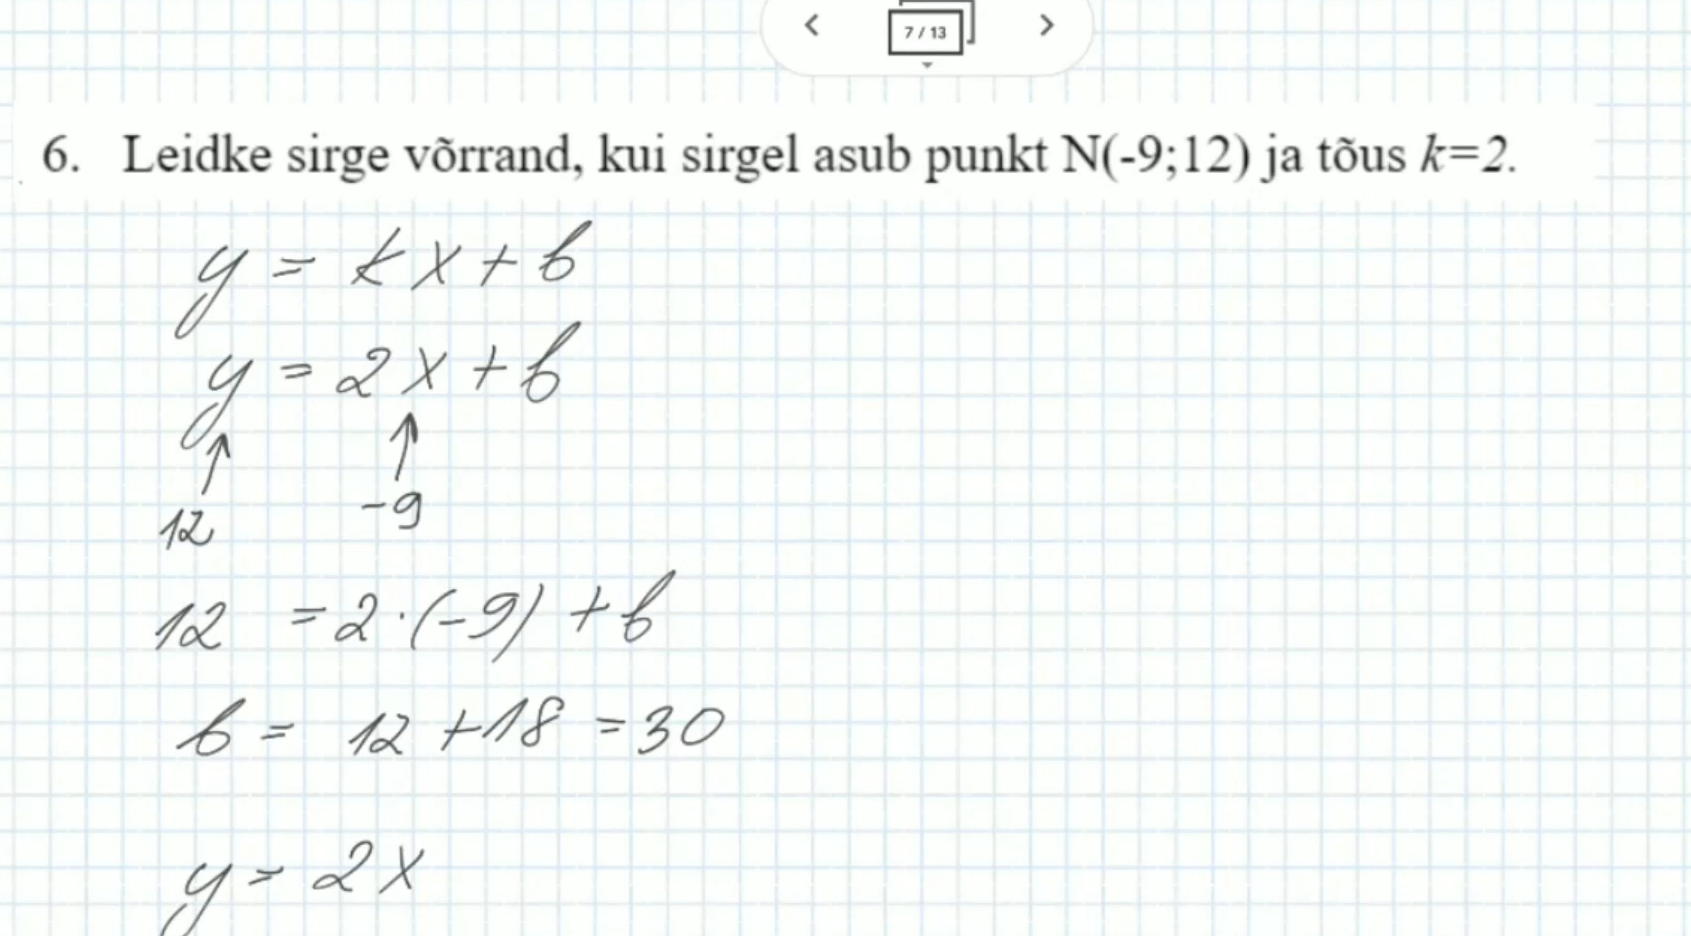 7 / 13
6. Leidke sirge võrrand, kui sirgel asub punkt N(-9;12) ja tõus k=2.
y = kx + b
y = 2x + b
12 -9
12 = 2·(-9) + b
b = 12 + 18 = 30
y = 2x